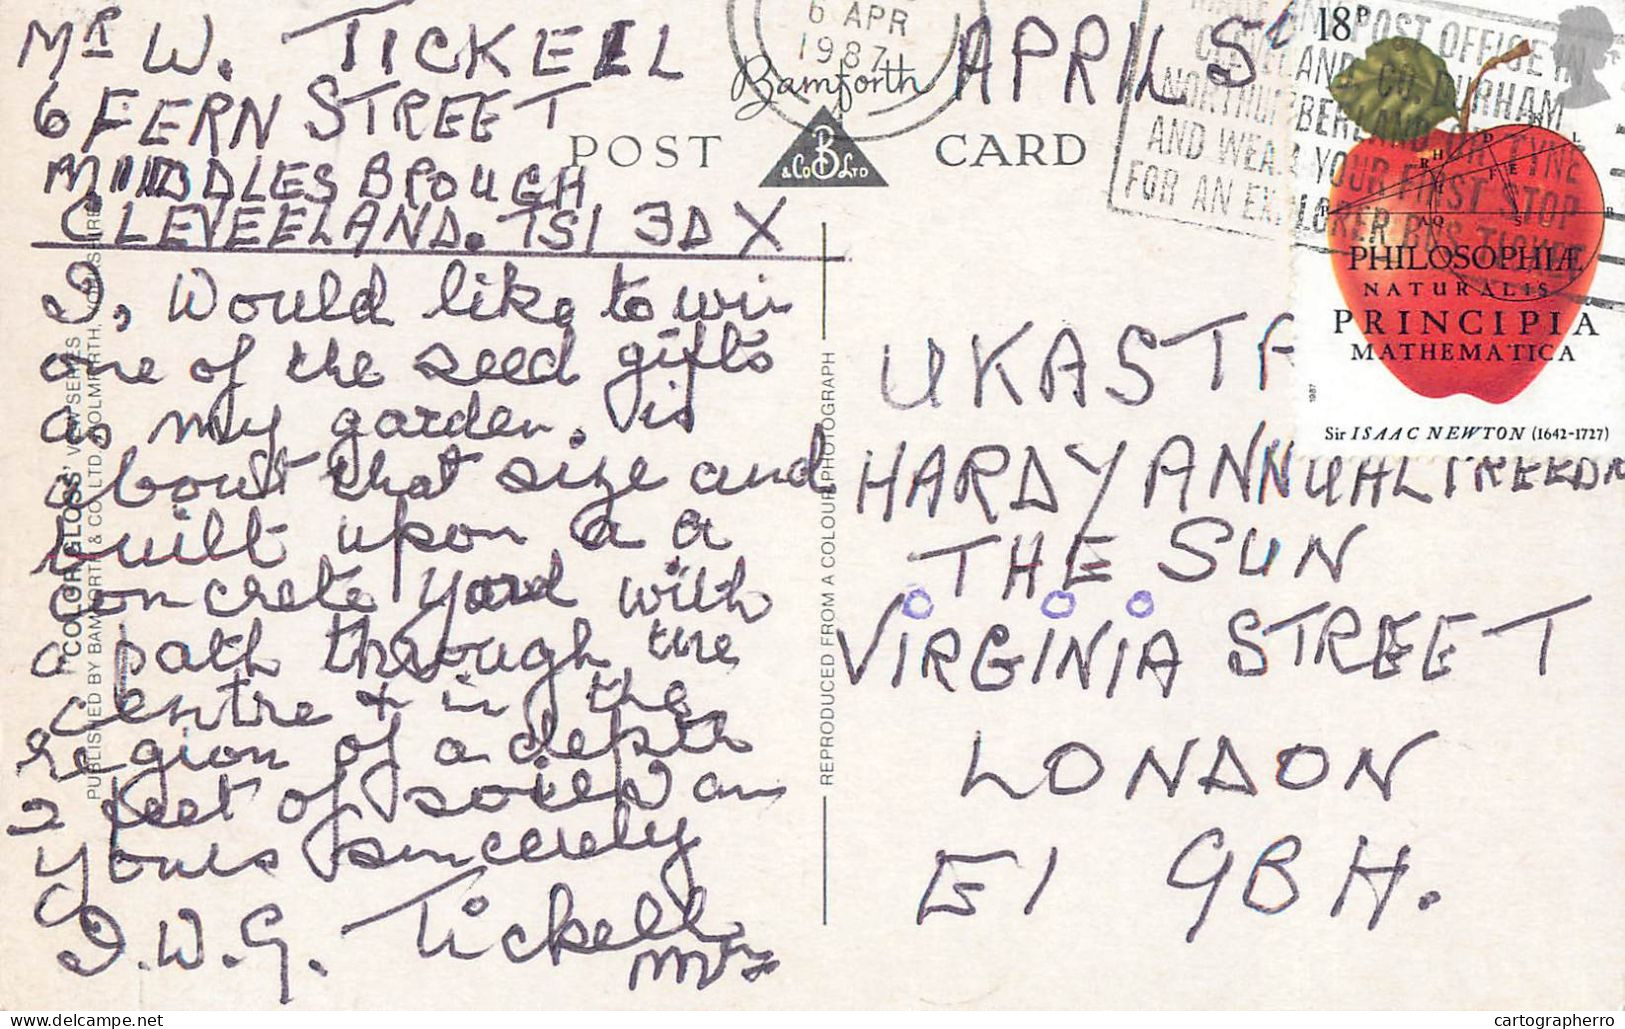 Mr W. TICKELL
6 FERN STREET
MIDDLESBROUGH
CLEVEELAND. TS1 3DX
I, would like to win
one of the seed gifts
as my garden. is
about that size and
built upon a a
concrete yard with
a path through the
centre + in the
region of a depth
2 feet of soil I am
yours sincerely
I.W.G. Tickell
Mr
6 APR
1987
Bamforth
POST CARD
B
& Co LTD
APRIL 5
MAKE ANY POST OFFICE IN
CLEVELAND, CO. DURHAM
NORTHUMBERLAND OR TYNE
AND WEAR YOUR FIRST STOP
FOR AN EXPLORER BUS TICKET
18P
PHILOSOPHIÆ
NATURALIS
PRINCIPIA
MATHEMATICA
1987
Sir ISAAC NEWTON (1642-1727)
UKASTA
HARDY ANNUAL FREEDM
THE SUN
VIRGINIA STREET
LONDON
E1 9BH.
"COLORGLOSS" VIEW SERIES
PUBLISHED BY BAMFORTH & CO LTD HOLMFIRTH, YORKSHIRE
REPRODUCED FROM A COLOUR PHOTOGRAPH
cartographerro